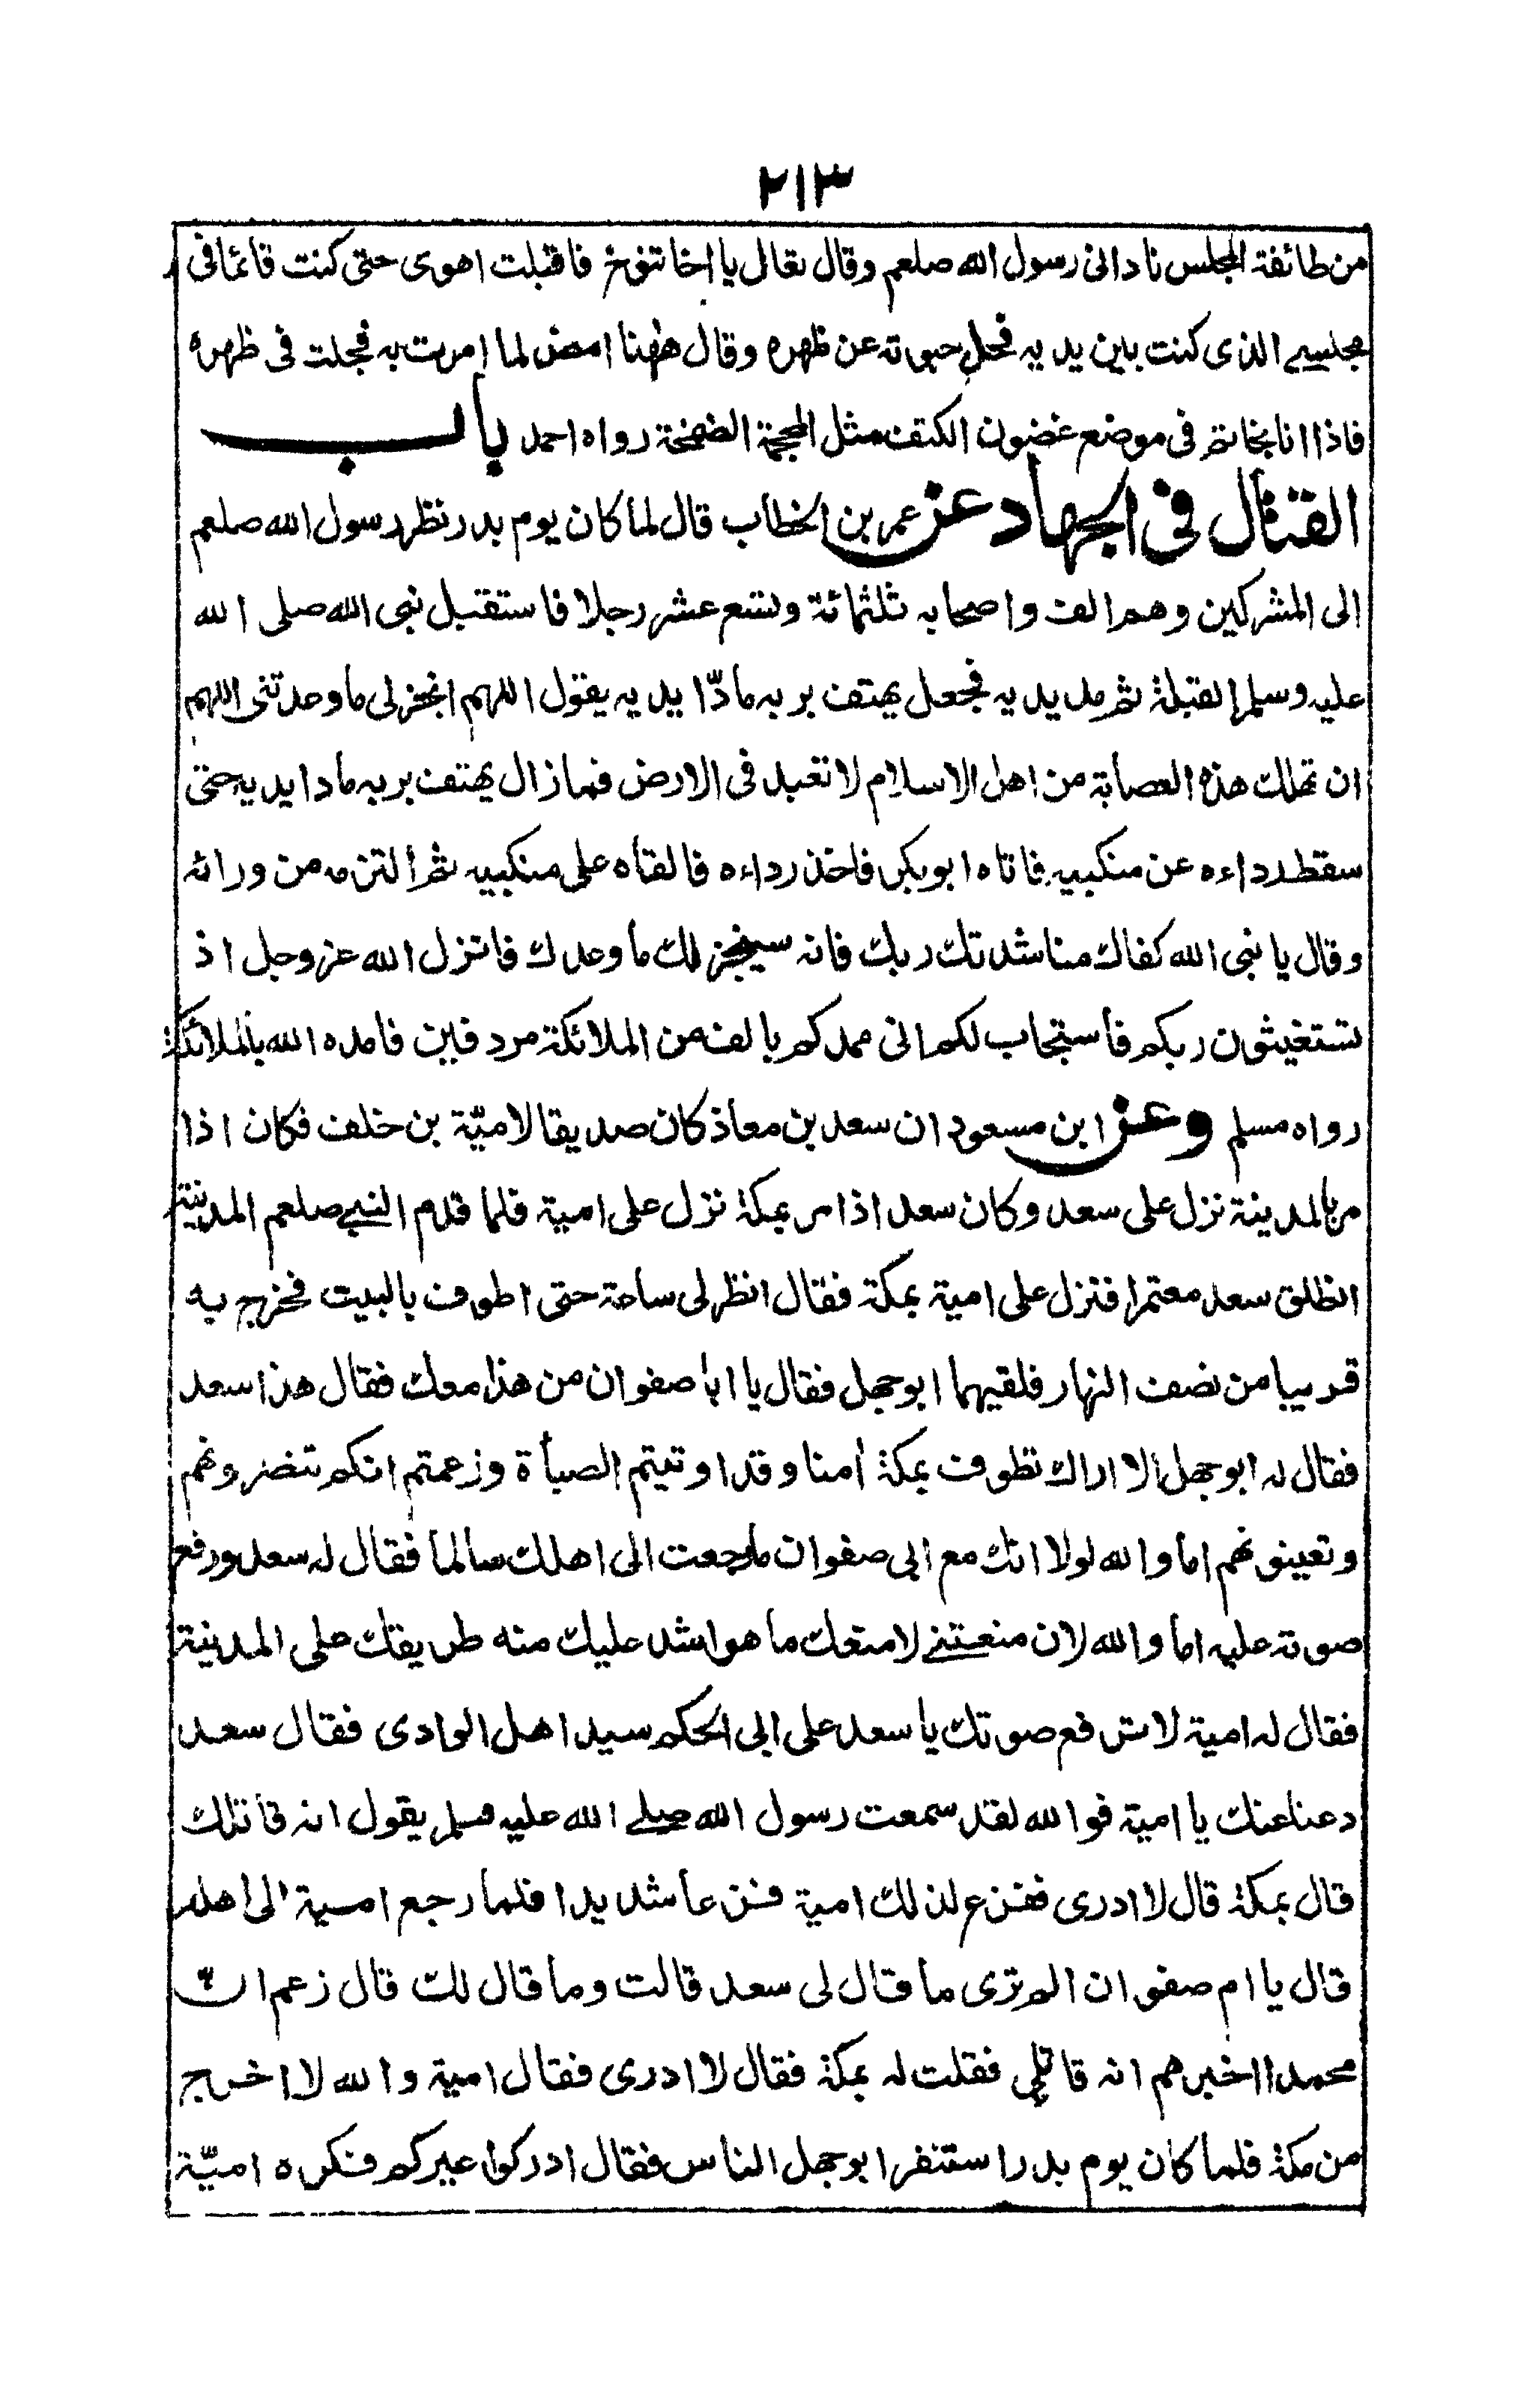 ٢١٣
من طائفة المجلس نادانى رسول الله صلعم وقال تعال يا اخا تنوخ فاقبلت اهوى حتى كنت قائما فى
مجلسے الذى كنت بين يديه فحل حبوته عن ظهره وقال ههنا امض لما امرت به فجلت فى ظهره
فاذا انا بخاتم فى موضع غضون الكتف مثل المحجمة الضخمة رواه احمد باب
القتال فى الجهاد عن عمر بن الخطاب قال لما كان يوم بدر نظر رسول الله صلعم
الى المشركين وهم الف واصحابه ثلثمائة وتسع عشر رجلا فاستقبل نبى الله صلى الله
عليه وسلم القبلة ثم مد يديه فجعل يهتف بربه مادّا يديه يقول اللهم انجز لى ما وعدتنى اللهم
ان تهلك هذه العصابة من اهل الاسلام لا تعبد فى الارض فما زال يهتف بربه مادا يديه حتى
سقط رداءه عن منكبيه فاتاه ابوبكر فاخذ رداءه فالقاه على منكبيه ثم التزمه من ورائه
وقال يا نبى الله كفاك مناشدتك ربك فانه سينجز لك ما وعدك فانزل الله عز وجل اذ
تستغيثون ربكم فاستجاب لكم انى ممدكم بالف من الملائكة مردفين فامده الله بالملائكة
رواه مسلم وعن ابن مسعود ان سعد بن معاذ كان صديقا لاميّة بن خلف فكان اذا
مر بالمدينة نزل على سعد وكان سعد اذا مر بمكة نزل على امية فلما قدم النبے صلعم المدينة
انطلق سعد معتمرا فنزل على امية بمكة فقال انظر لى ساعة حتى اطوف بالبيت فخرج به
قريبا من نصف النهار فلقيهما ابوجهل فقال يا ابا صفوان من هذا معك فقال هذا سعد
فقال له ابوجهل الا اراك تطوف بمكة أمنا وقد اوتيتم الصبأة وزعمتم انكم تنصرونهم
وتعينونهم اما والله لولا انك مع ابى صفوان ما رجعت الى اهلك سالما فقال له سعد ورفع
صوته عليه اما والله لان منعتنے لامنعك ما هو اشد عليك منه طريقك على المدينة
فقال له امية لا ترفع صوتك يا سعد على ابى الحكم سيد اهل الوادى فقال سعد
دعنا عنك يا امية فوالله لقد سمعت رسول الله صلے الله عليه وسلم يقول انه قاتلك
قال بمكة قال لا ادرى ففزع لذلك امية فزعا شديدا فلما رجع امية الى اهله
قال يا ام صفوان الم ترى ما قال لى سعد قالت وما قال لك قال زعم ان
محمدا اخبرهم انه قاتلى فقلت له بمكة فقال لا ادرى فقال امية والله لا اخرج
من مكة فلما كان يوم بدر استنفر ابوجهل الناس فقال ادركوا عيركم فكره اميّة